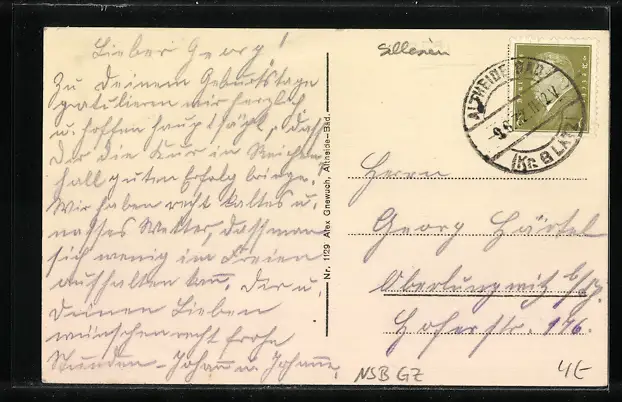 Lieber Georg!
Zu Deinem Geburtstage
gratulieren wir herzlich
u. hoffen hauptsächl., daß
Dir die Kur in Reichen-
hall guten Erfolg bringe.
Wir haben recht kaltes u.
nasses Wetter, daß man
sich wenig im Freien
aufhalten kann. Dir u.
Deinen Lieben
wünschen recht frohe
Stunden - Johann u. Johanne.
Nr. 1129 Alex Gnewuch, Altheide-Bad.
Sillesien
ALTHEIDE BAD
(Kr. GLATZ)
Herrn
Georg Härtel
Oberlungwitz b/
Hoferstr. 176.
NSB GZ
4E